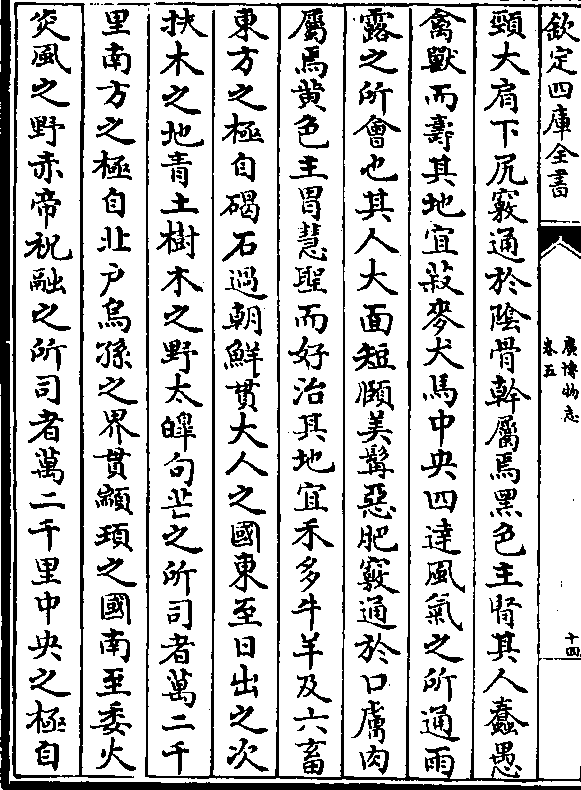 欽定四庫全書
廣博物志
卷五
十四
頸大肩下尻竅通於陰骨幹屬焉黑色主腎其人蠢愚
禽獸而壽其地宜菽麥犬馬中央四達風氣之所通雨
露之所會也其人大面短頤美髯惡肥竅通於口膚肉
屬焉黄色主胃慧聖而好治其地宜禾多牛羊及六畜
東方之極自碣石過朝鮮貫大人之國東至日出之次
扶木之地青土樹木之野太皥句芒之所司者萬二千
里南方之極自北户烏孫之界貫顓頊之國南至委火
炎風之野赤帝祝融之所司者萬二千里中央之極自